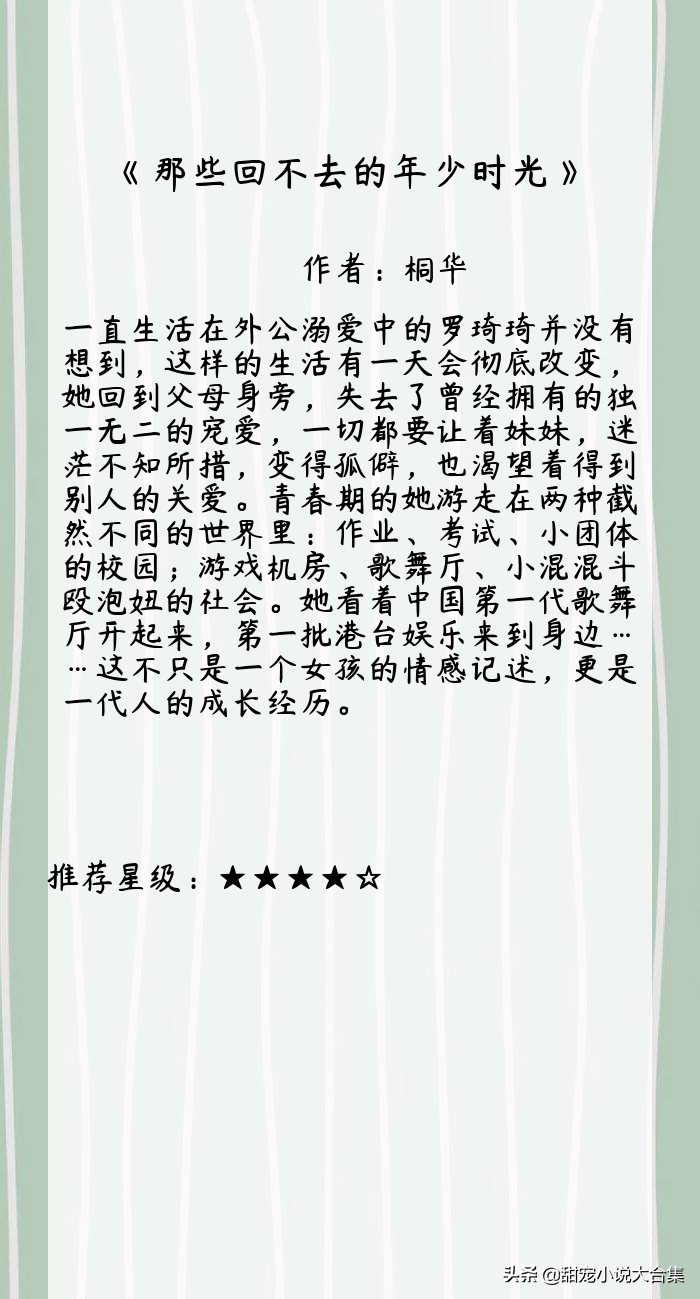 《那些回不去的年少时光》
作者：桐华
一直生活在外公溺爱中的罗琦琦并没有
想到，这样的生活有一天会彻底改变，
她回到父母身旁，失去了曾经拥有的独
一无二的宠爱，一切都要让着妹妹，迷
茫不知所措，变得孤僻，也渴望着得到
别人的关爱。青春期的她游走在两种截
然不同的世界里：作业、考试、小团体
的校园；游戏机房、歌舞厅、小混混斗
殴泡妞的社会。她看着中国第一代歌舞
厅开起来，第一批港台娱乐来到身边…
…这不只是一个女孩的情感记述，更是
一代人的成长经历。
推荐星级：★★★★☆
头条 @甜宠小说大合集